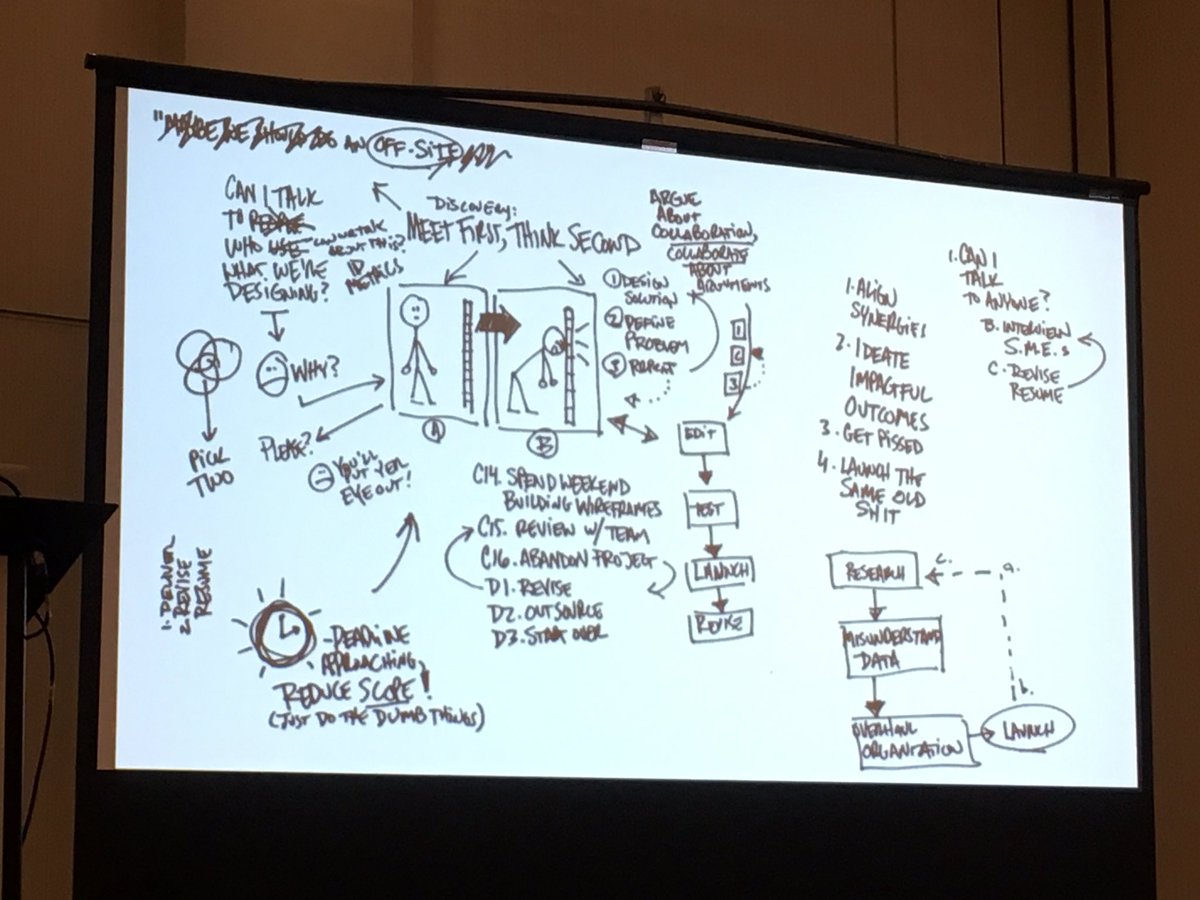 "MAYBE WE SHOULD DO AN OFF-SITE
CAN I TALK
TO PEOPLE
WHO USE
WHAT WE'RE
DESIGNING?
CAN WE TALK
ABOUT THIS?
ID
METRICS
DISCOVERY:
MEET FIRST, THINK SECOND
ARGUE
ABOUT
COLLABORATION,
COLLABORATE
ABOUT
ARGUMENTS
1 DESIGN
SOLUTION
2 DEFINE
PROBLEM
3 REPEAT
1
2
3
WHY?
PLEASE?
YOU'LL
PUT YER
EYE OUT!
A
B
PICK
TWO
1. DELIVER
2. REVISE
RESUME
C14. SPEND WEEKEND
BUILDING WIREFRAMES
C15. REVIEW W/ TEAM
C16. ABANDON PROJECT
D1. REVISE
D2. OUTSOURCE
D3. START OVER
EDIT
TEST
LAUNCH
REVISE
- DEADLINE
APPROACHING,
REDUCE SCOPE!
(JUST DO THE DUMB THINGS)
1. ALIGN
SYNERGIES
2. IDEATE
IMPACTFUL
OUTCOMES
3. GET PISSED
4. LAUNCH THE
SAME OLD
SHIT
1. CAN I
TALK
TO ANYONE?
B. INTERVIEW
S.M.E.s
C. REVISE
RESUME
RESEARCH
c.
a.
MISUNDERSTAND
DATA
b.
OVERHAUL
ORGANIZATION
LAUNCH